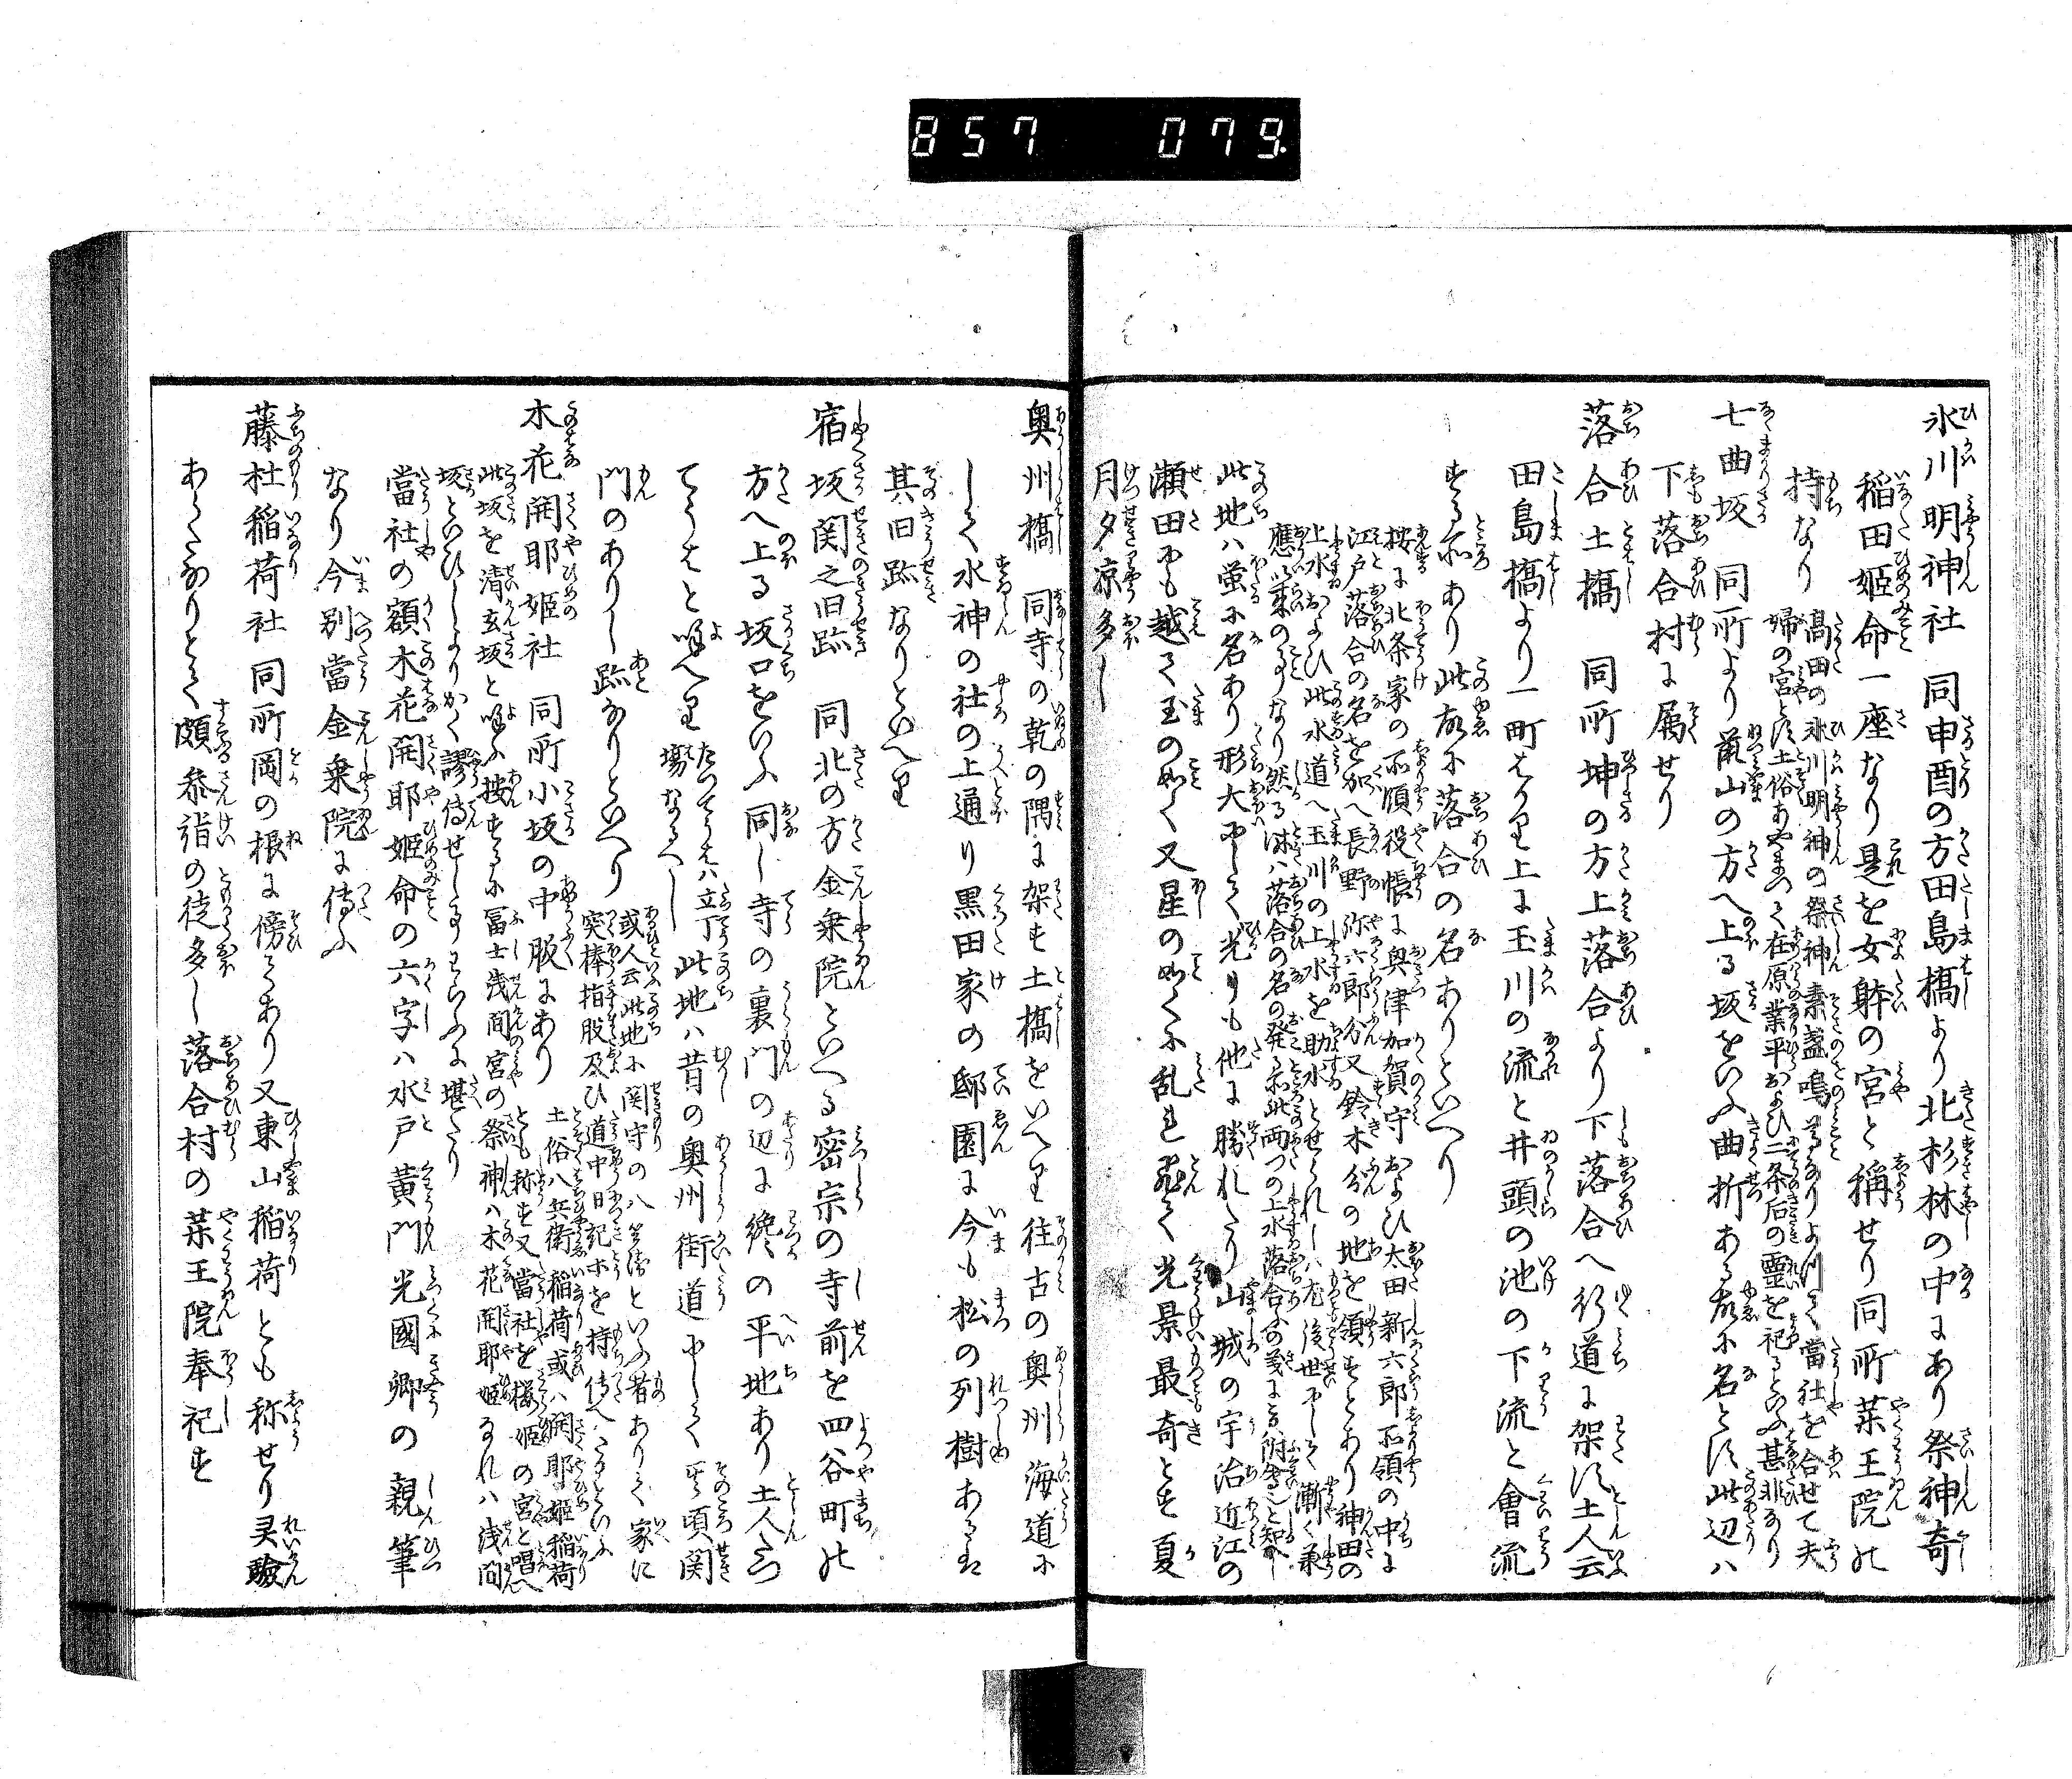 857 079.
氷川明神社 同申酉の方田島橋より北杉林の中にあり祭神奇
稲田姫命一座なり是を女躰の宮と稱せり同所薬王院の
持なり 高田の氷川明神の祭神素盞嗚尊なりよつて當社を合せて夫
婦の宮とす土俗あやまつて在原業平および二条后の靈を祀るといふ甚非なり
七曲坂 同所より鼠山の方へ上る坂をいふ曲折ある故に名とす此辺ハ
下落合村に属せり
落合土橋 同所坤の方上落合より下落合へ行道に架す土人云
田島橋より一町はかり上に玉川の流と井頭の池の下流と會流
する所あり此故に落合の名ありといへり
按に北条家の所領役帳に奥津加賀守および太田新六郎所領の中に
江戸落合の名を加へ長野弥六郎分又鈴木分の地を領すとあり神田の
上水および此水道へ玉川の上水を助水とせられしハ尤後世にして漸く承
應以来の事なり然る時ハ落合の名の発る所此両つの上水落合ふの義にハあらさると知へし
此地ハ蛍に名あり形大にして光りも他に勝れたり山城の宇治近江の
瀬田にも越て玉の如く又星の如くに乱れ飛て光景最奇とす夏
月夕涼多し
奥州橋 同寺の乾の隅に架す土橋をいへり往古の奥州海道に
して水神の社の上通り黒田家の邸園に今も松の列樹あるは
其旧跡なりといへり
宿坂関之旧跡 同北の方金乗院といへる密宗の寺前を四谷町の
方へ上る坂口をいふ同し寺の裏門の辺に纔の平地あり土人たつ
てうはと唤へり たつてうはハ立丁場なるへし 此地ハ昔の奥州街道にして其頃関
門のありし跡なりといへり 或人云此地に関守の八兵衛といふ者ありて家に
突棒指股及ひ道中日記等を持傳へたりといふ
木花開耶姫社 同所小坂の中服にあり 土俗八兵衛稲荷或ハ開耶姫稲荷
とも称す又當社を桜姫の宮と唱へ
此坂を清玄坂と唤ふ按するに冨士浅間宮の祭神ハ木花開耶姫なれハ浅間
坂といひしよりかく謬傳せしことわらふに堪たり
當社の額木花開耶姫命の六字ハ水戸黄門光國卿の親筆
なり今別當金乗院に傳ふ
藤杜稲荷社 同所岡の根に傍てあり又東山稲荷とも称せり灵驗
あらたなりとて頗参詣の徒多し落合村の薬王院奉祀す